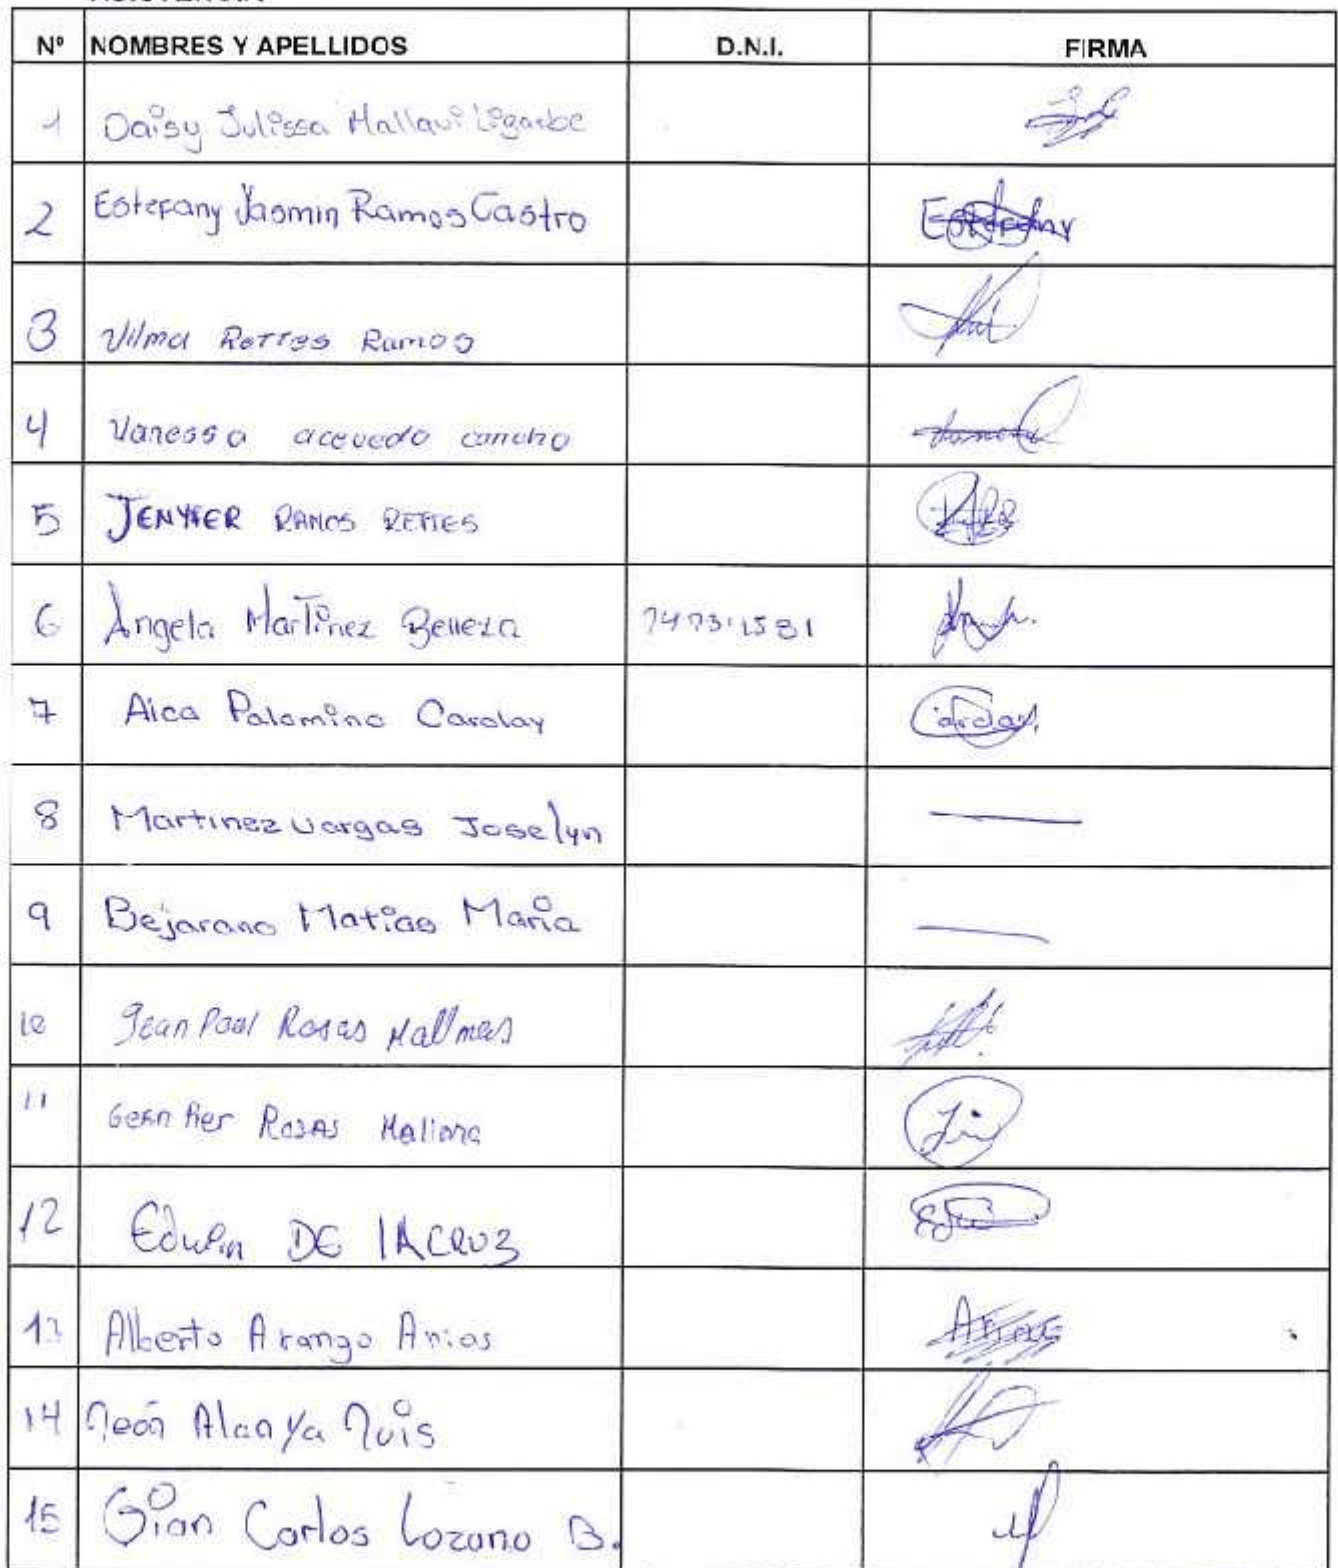 Nº NOMBRES Y APELLIDOS D.N.I. FIRMA
1 Daisy Julissa Mallaui Ligarbe
2 Estefany Yasmin Ramos Castro Estefany
3 Vilma Rettes Ramos
4 Vanessa acevedo cancho
5 JENYFER RAMOS RETTES
6 Angela Martinez Belleza
7 Aica Palomino Carolay Carolay
8 Martinez Vargas Joselyn
9 Bejarano Matias Maria
10 Jean Paol Rosas Mallmas
11 Gean Pier ROSAS
12 Edwin DE lA CRUZ
13 Alberto Arango Arios
14 Alanya
15 Gian Carlos Lozano B.